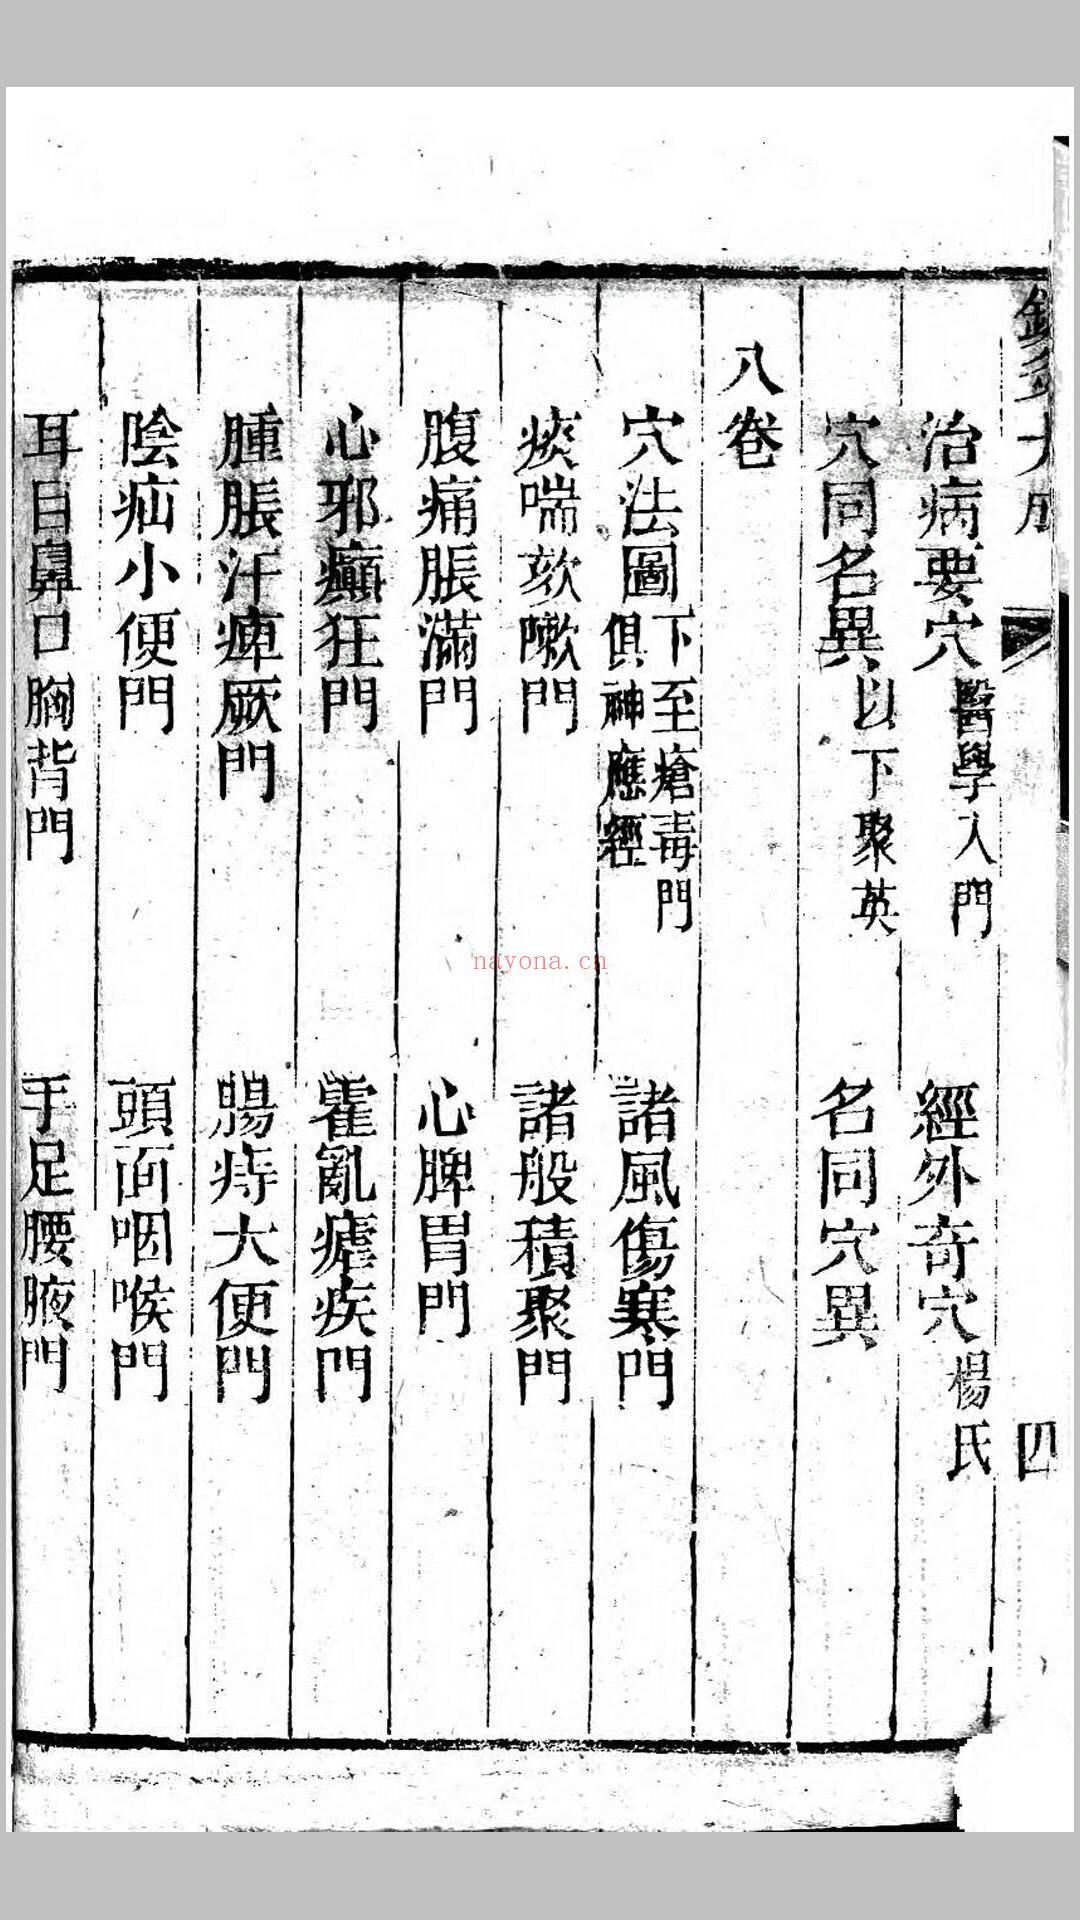 鍼灸大成
四
治病要穴 醫學入門 經外奇穴 楊氏
穴同名異 以下聚英 名同穴異
八卷
穴法圖 下至瘡毒門俱神應經 諸風傷寒門
痰喘欬嗽門 諸般積聚門
腹痛脹滿門 心脾胃門
心邪癲狂門 霍亂瘧疾門
腫脹汗痺厥門 腸痔大便門
陰疝小便門 頭面咽喉門
耳目鼻口胸背門 手足腰腋門
nayona.cn